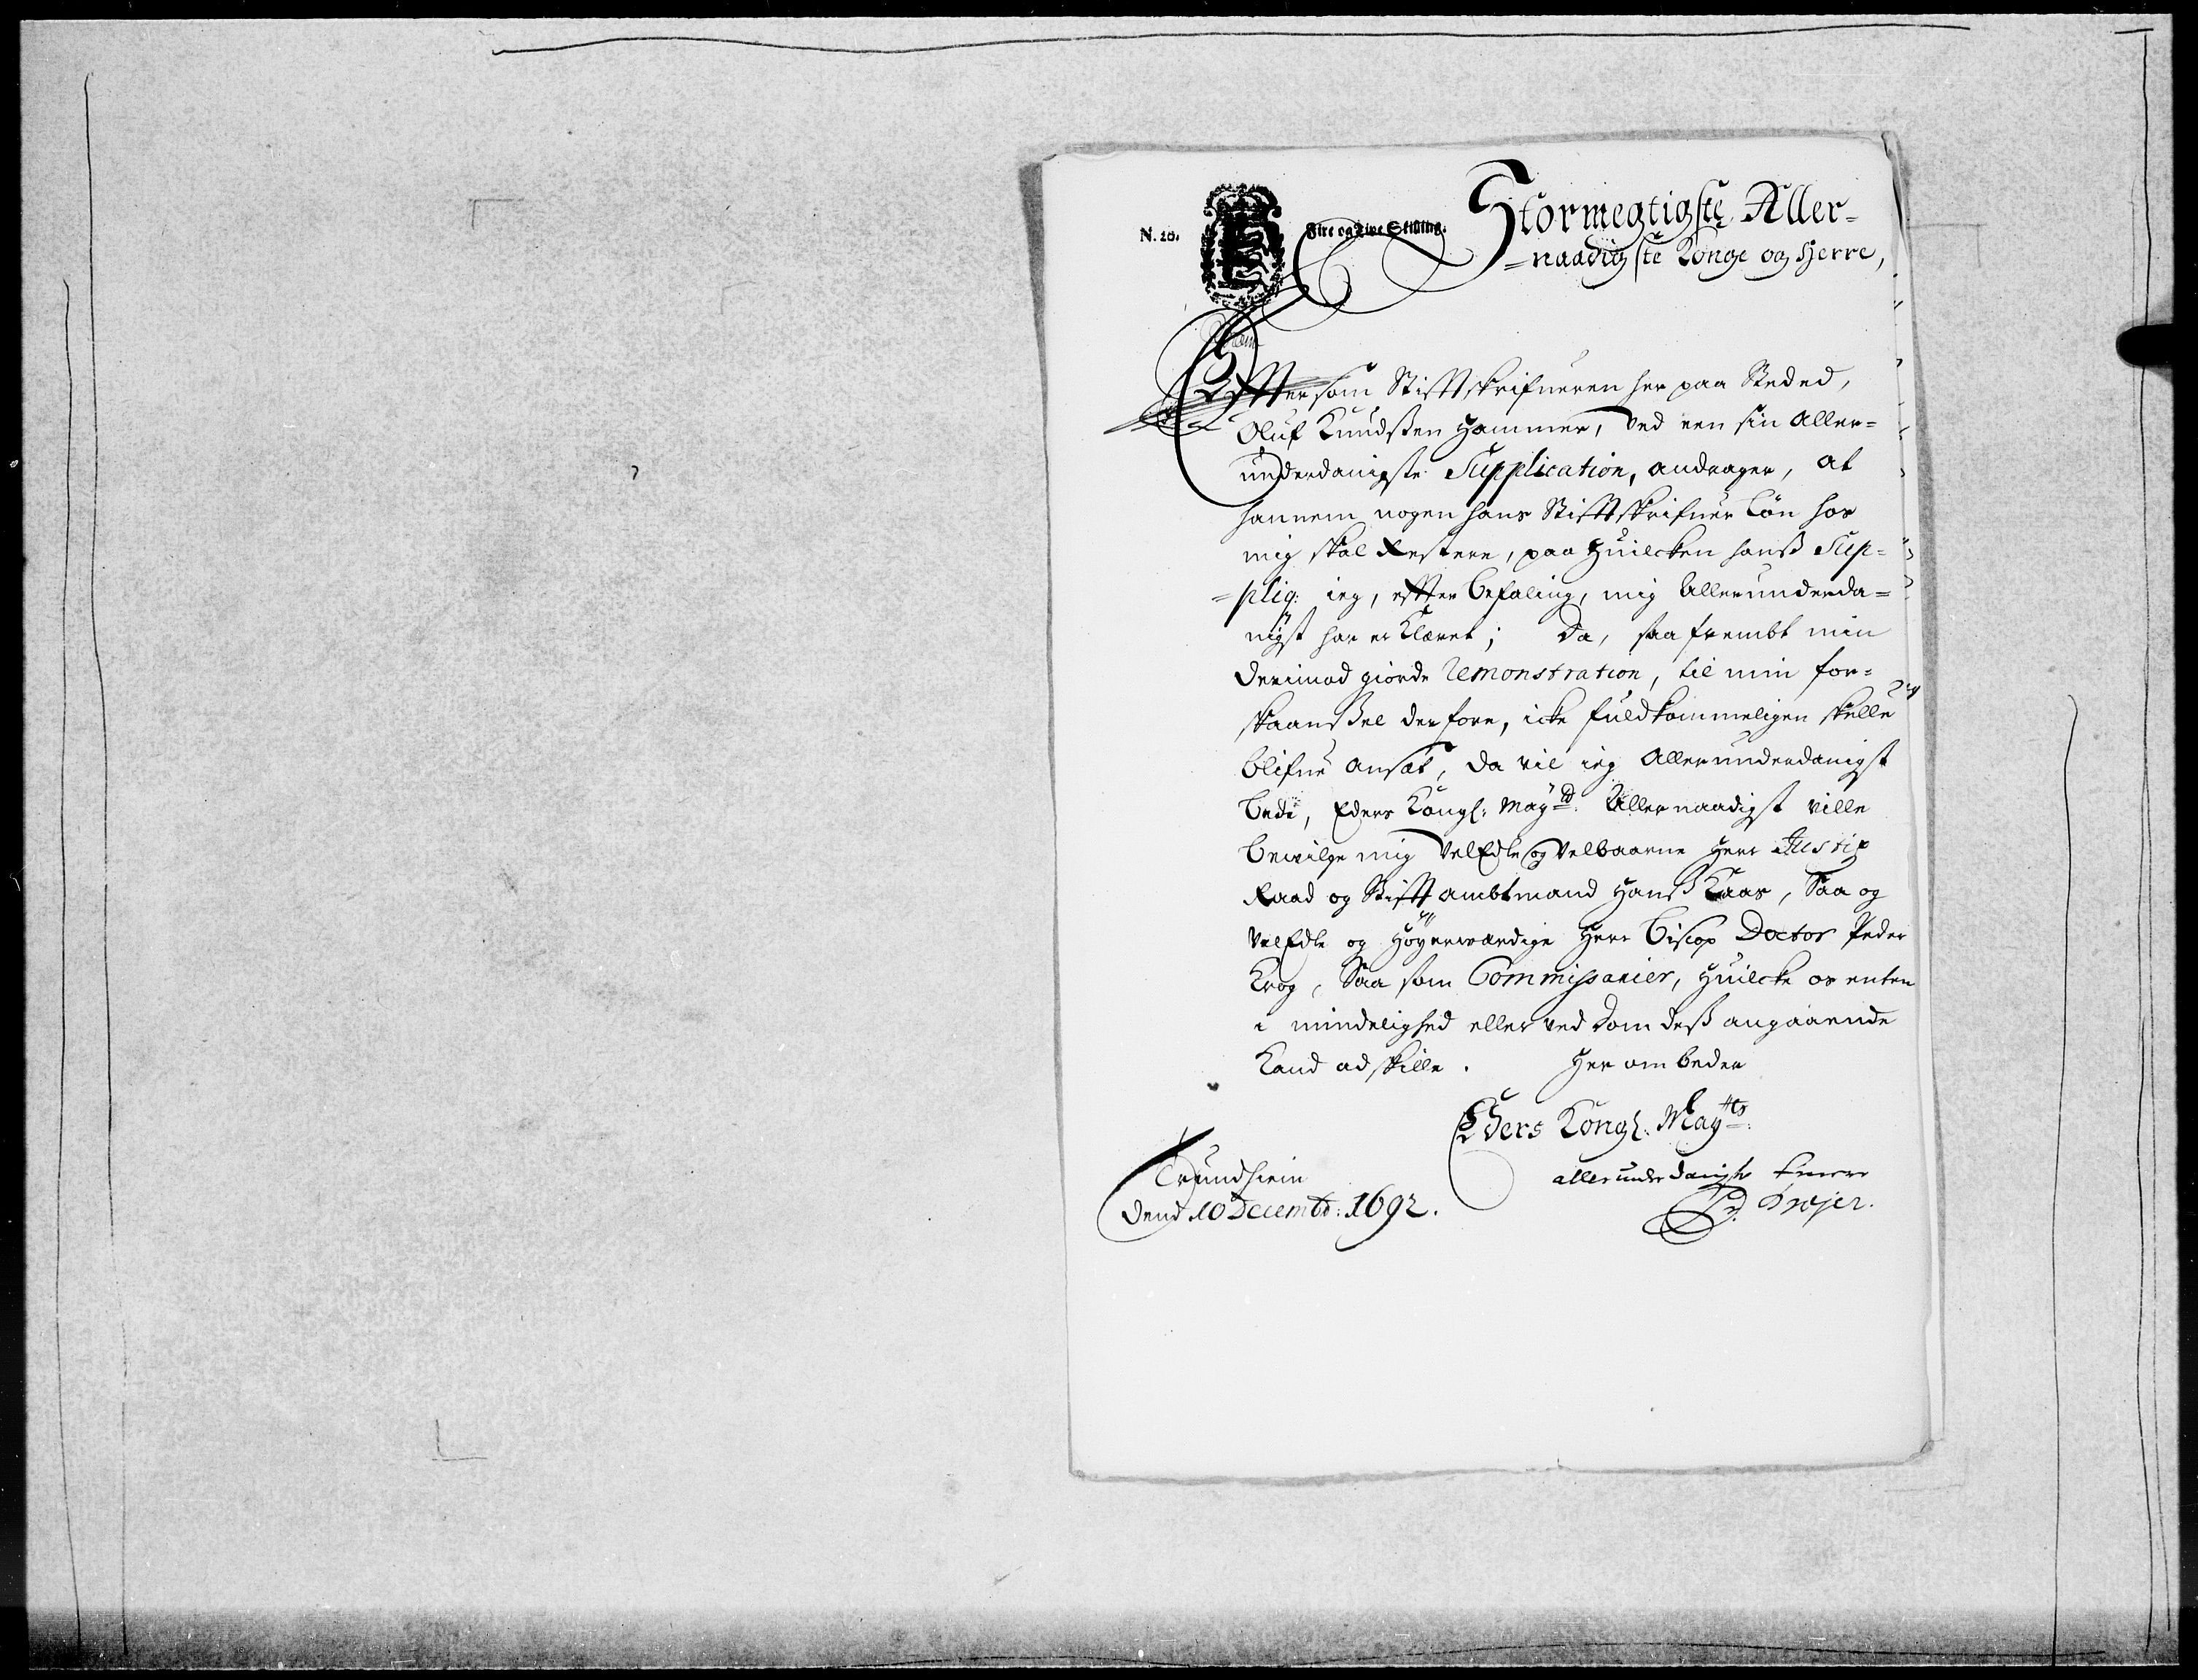 N. 20.
Fire og Tive Skilling.
Stormegtigste Aller-
=naadigste Konge og Herre,
Effter som Stifftskrifueren her paa Steded,
Oluf Knudssen Hammer, Ved een sin Aller-
underdanigste Supplication, andrager, at
hannem nogen hans Stifftskrifuer Løn hos
mig skal Restere, paa Huilcken hanß Sup-
=pliq: ieg, effter befaling, mig Allerunderda-
nigst har erklæret; Da, saa frembt min
derimod giorde Remonstration, til min for-
skaanßel derfore, icke fuldkommeligen skulle
blifue ansat, da vil ieg Allerunderdanigst
bede, Eders Kongl: Maytt: Allernaadigst ville
bevilge mig VelEdle og Velbaarne Herr Justiz
Raad og Stifftambtmand Hanß Kaas, Saa og
VelEdle og Høyerwærdige Herr Biscop Doctor Peder
Krog, Saa som Commissarier, Huilcke os enten
i mindelighed eller ved Dom deß angaaende
Kand adskille. Her om beder
Eders Kongl: Maytts
Trundhiem
allerunderdanigste
Dend 10 Decembr: 1692.
Dreyer.